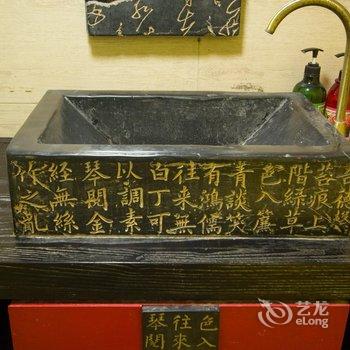 苔痕上
階綠草
色入簾
青談笑
有鴻儒
往來無
白丁可
以調素
琴閱金
經無絲
竹之亂
色入
往來
琴閱
艺龙
eLong